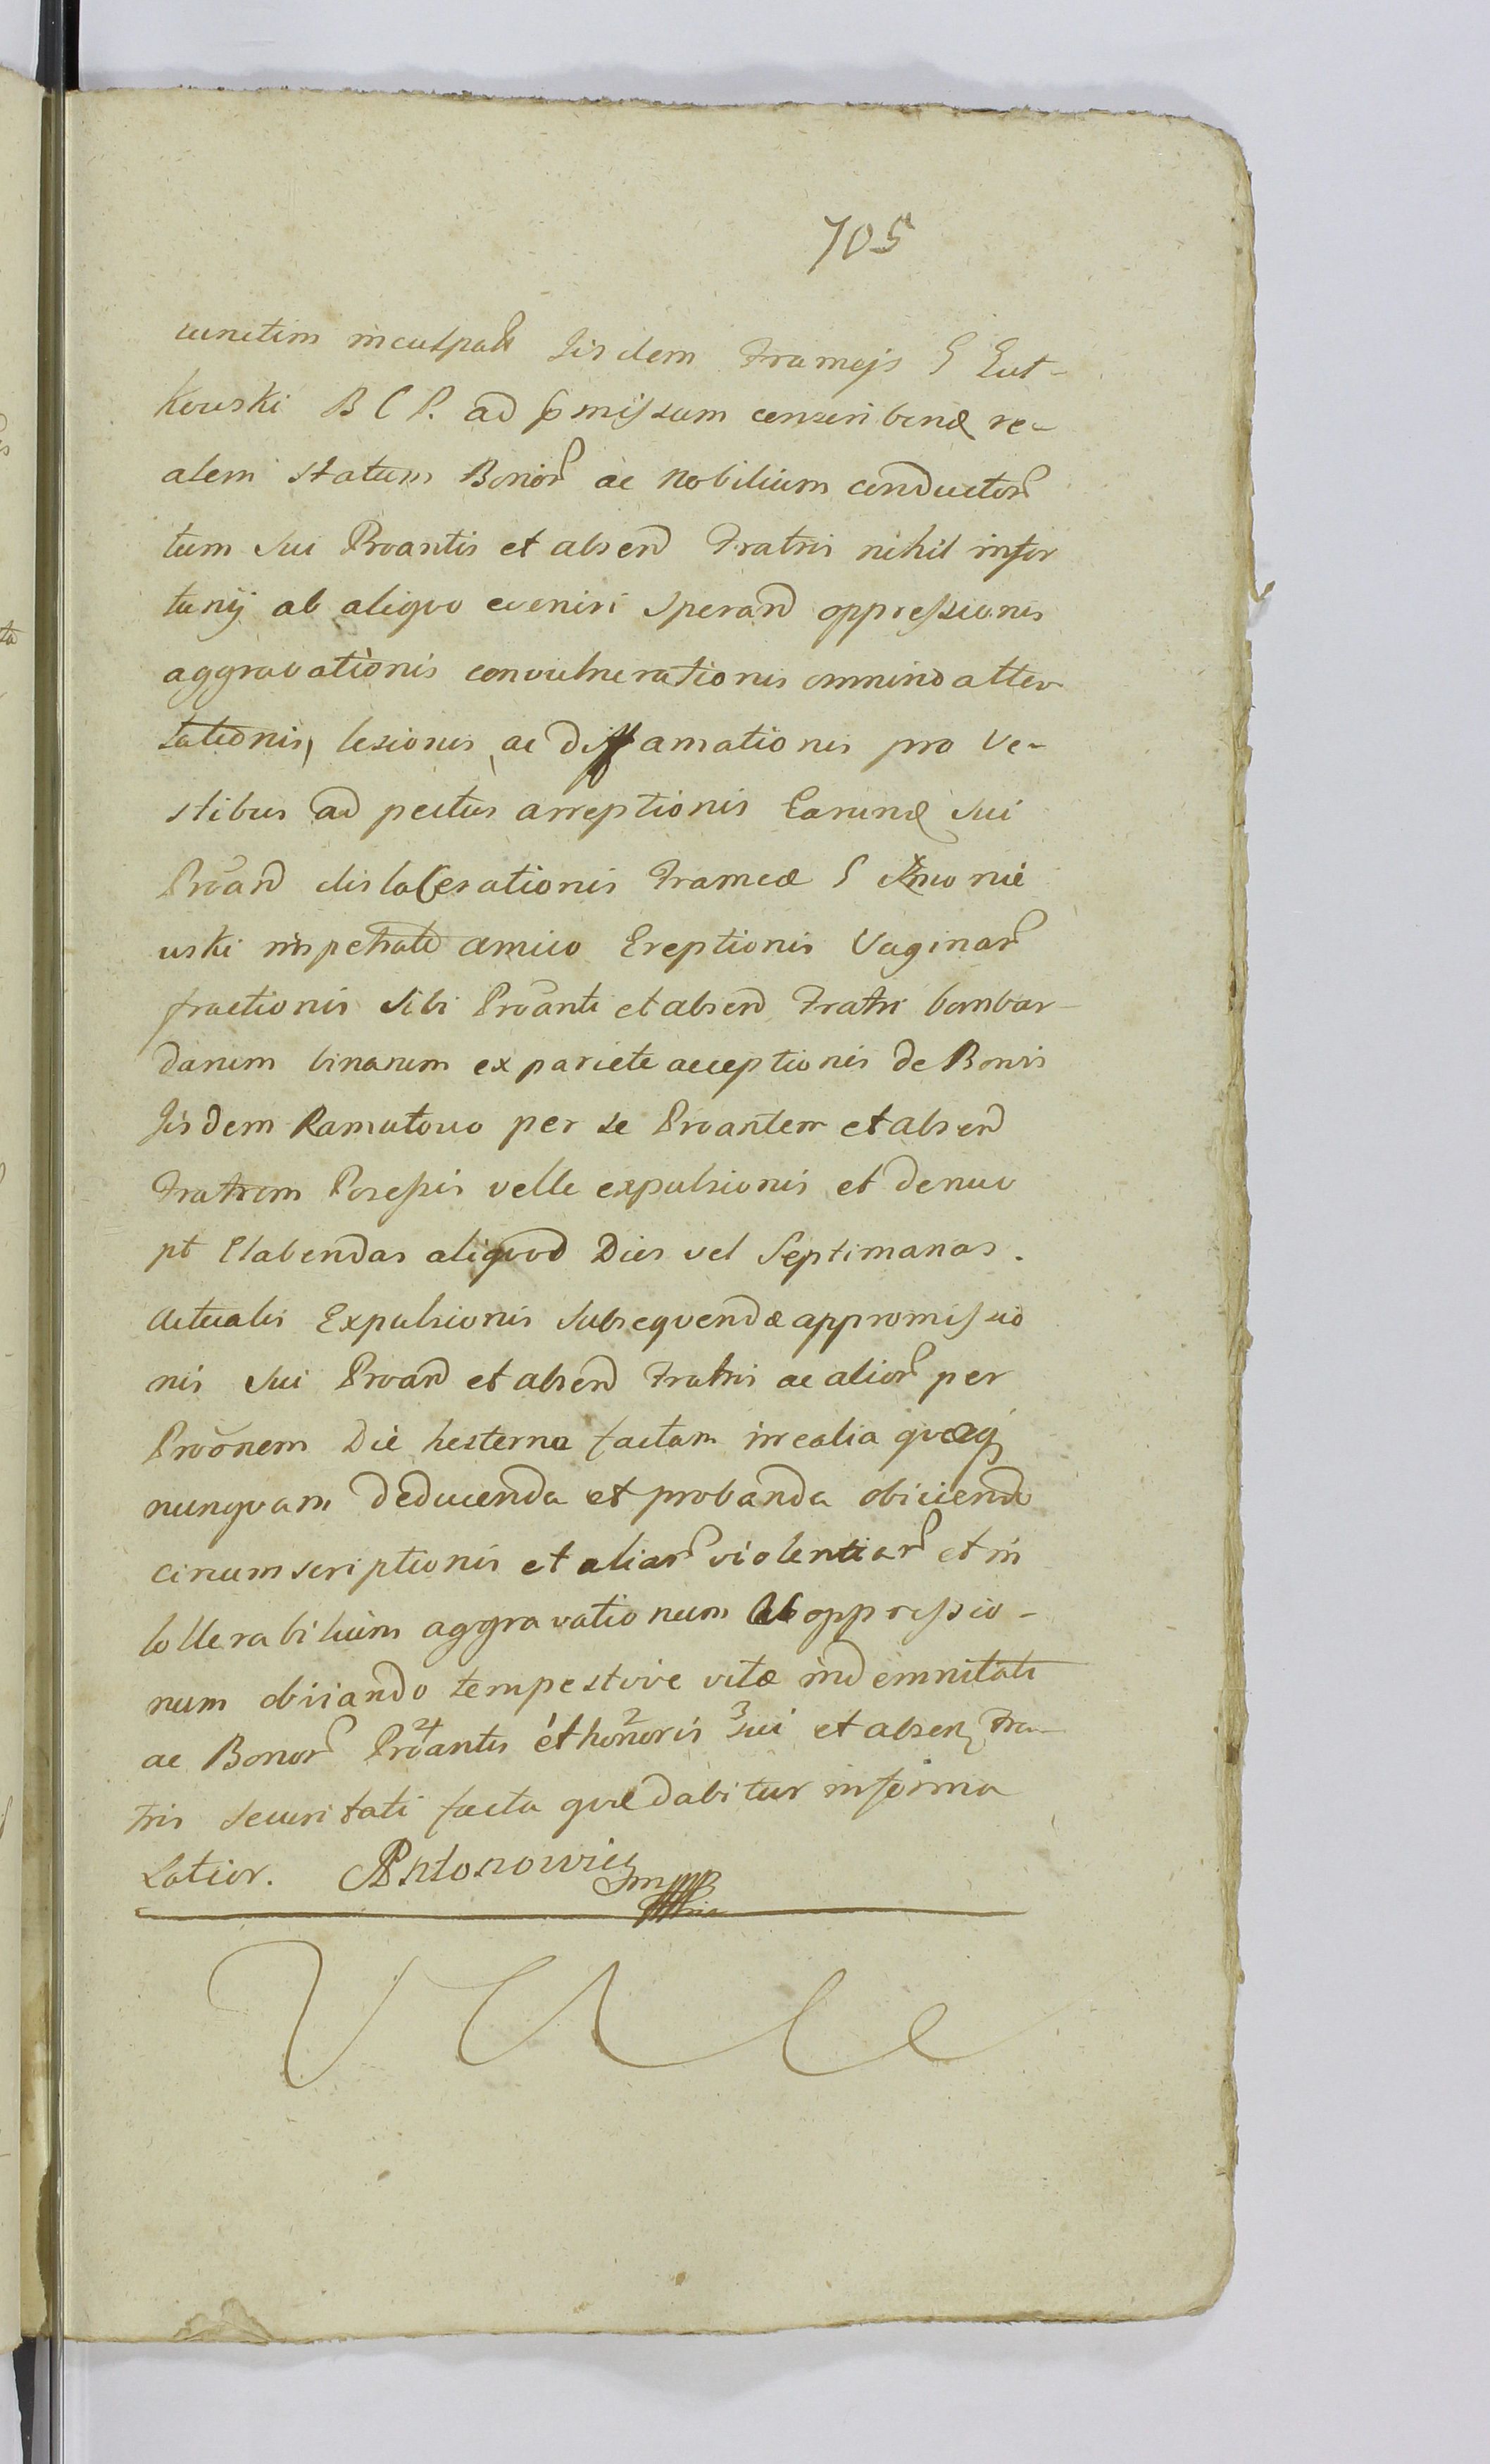 705
cunctim inculpati Iisdem Frameis G Gut-
kowski B C P. ad pmissum conscribend re-
alem statum Bonor ac Nobilium conductor
tum sui Proantis et absend Fratris nihil infor
tunij ab aliquo eveniri Sperand oppressionis
aggravationis convulnerationis omnino atten
tationis, lesionis, ac diffamationis pro Ve-
stibus ad pectus arreptionis Earund sui
Proand dislacerationis Frameæ G
uski impetrate amico Ereptionis Vaginar
fractionis Sibi Proanti et absend Fratri bombar-
darum binarum ex pariete acceptionis de Bonis
Iisdem Ramutowo per se Proantem et absend
Fratrem Posessis velle expulsionis et denuo
pt Elabendas aliquod Dies vel Septimanas.
Actualis Expulsionis Subsequendæ appromissio
nis sui Proand et absend Fratris ac alior per
Proonem Die hesterna factam irrealia quæq
nunquam deducenda et probanda obiiciendo
circumscriptionis et aliar violentiar et in
tollerabilium aggravationum ab oppressio-
num obviando tempestive vitæ indemnitati
ac Bonor 4 Proantis 1 et 2 honoris 3 sui et absen Fra-
tris securitati facta quæ dabitur in forma
Latior. APntonowicz mpp
Vale